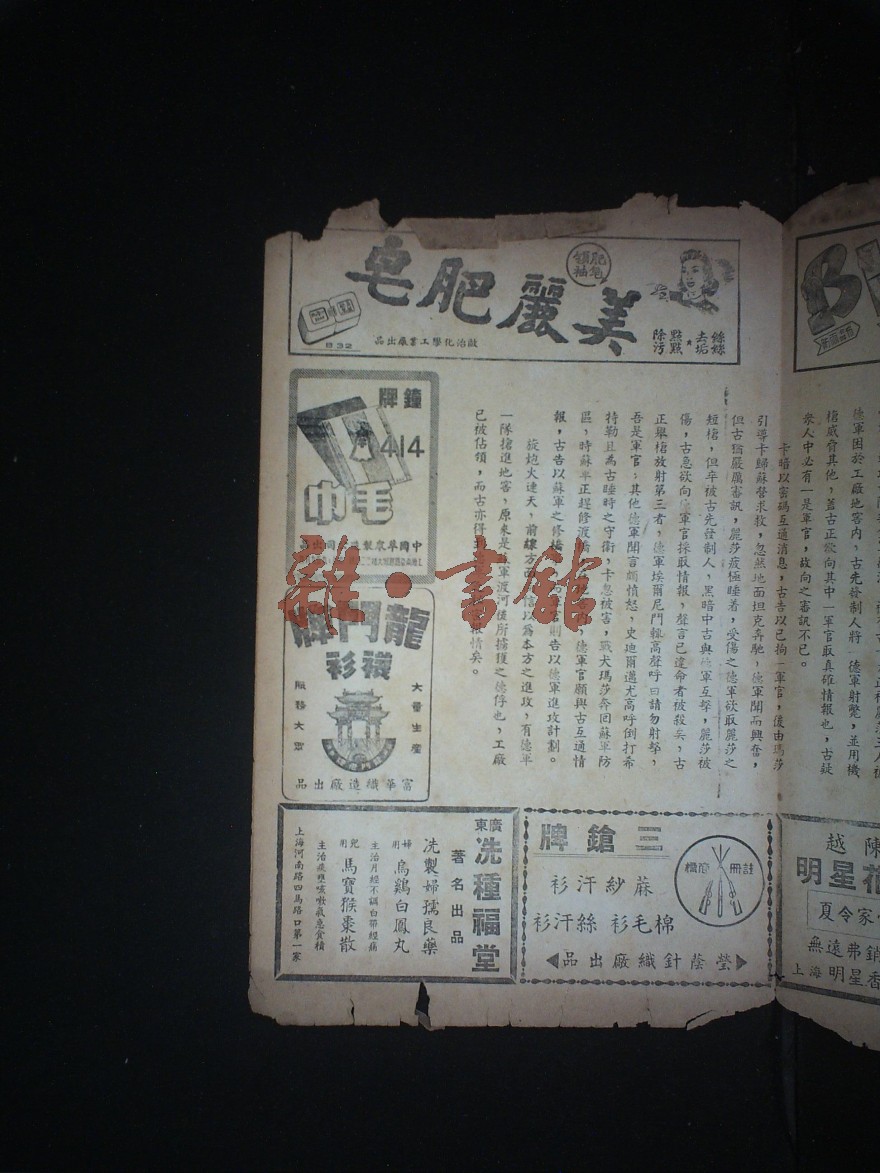 美麗肥皂
肥皂
領袖
絲絲
去垢
點點
除污
啟治化學工業廠出品
卡暗以密碼互通消息，古告以已拘一軍官，後由瑪莎
引導卡歸蘇營求救，忽然地面坦克奔馳，德軍聞而興奮，
但古猶嚴厲審訊，麗莎疲極睡着，受傷之德軍欲取麗莎之
短槍，但卒被古先發制人，黑暗中古與德軍互擊，麗莎被
傷，古急欲向德軍官採取情報，聲言已違命者被殺矣，古
正舉槍放射第三者，德軍埃爾尼門輒高聲呼曰請勿射擊，
吾是軍官，其他德軍聞言頗憤怒，史迪爾邁尤高呼倒打希
特勒且為古睡時之守衛，卡忽被害，戰犬瑪莎奔回蘇軍防
區，時蘇軍正趕修渡橋
德軍官願與古互通情
報，古告以蘇軍之修橋
官則告以德軍進攻計劃。
旋炮火連天，前線方面
信以為本方之進攻，有德軍
一隊搶進地窖，原來是
軍渡河後所擄獲之德俘也，工廠
已被佔領，而古亦得
報情矣。
鐘牌
414
毛巾
中國萃眾製
司出品
龍門牌
襪衫
大量生產
服務大眾
富華織造廠出品
三鎗牌
註冊
商標
蔴紗汗衫
棉毛衫 絲汗衫
瑩蔭針織廠出品
廣東
洗種福堂
著名出品
洗製婦孺良藥
婦用 烏鷄白鳳丸
主治月經不調白帶經痛
兒用 馬寶猴棗散
主治痰壅咳嗽氣急食積
上海河南路四馬路口第一家
德軍困於工廠地窖內，古先發制人將一德軍射斃，並用機
槍威脅其他，蓋古正欲向其中一軍官取真確情報也，古疑
眾人中必有一是軍官，故向之審訊不已。
越陳
明星花
夏令家
無遠弗銷
上海明星香
雜·書館